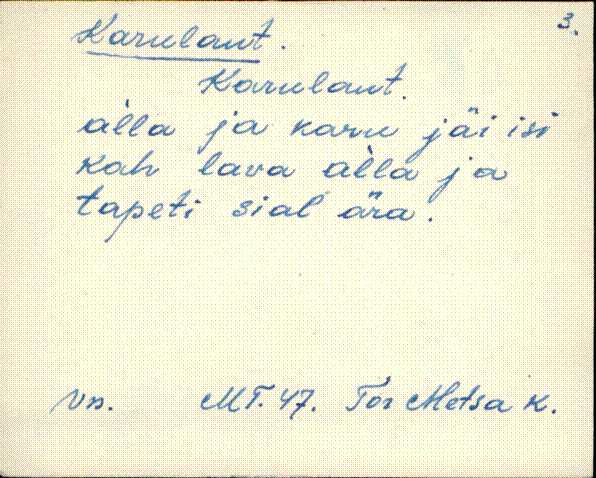 3.
Karulaut.
Karulaut.
àlla ja karu jäi isi
kah lava àlla ja
tapeti sial ära.
Vn. MT. 47. Tor Metsa k.